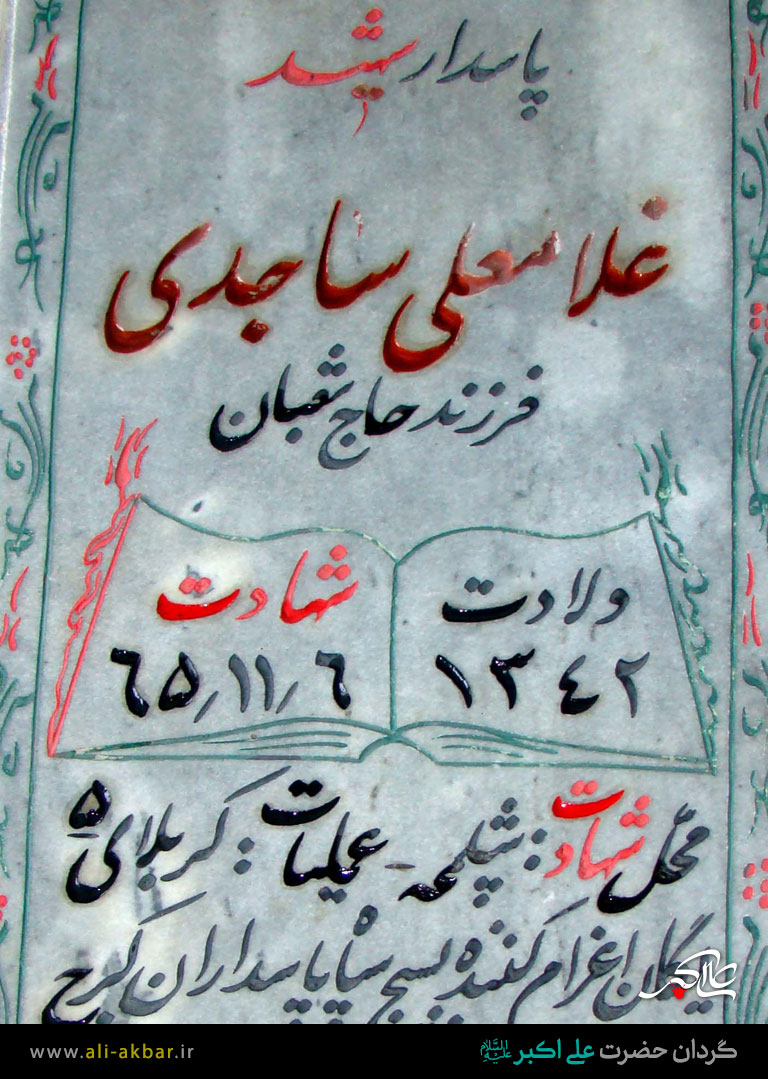 پاسدار شهید
غلامعلی ساجدی
فرزند حاج شعبان
ولادت
۱۳٤۲
شهادت
٦٥٫۱۱٫٦
محل شهادت: شلمچه - عملیات: کربلای ٥
یگان اعزام کننده بسیج سپاه پاسداران کرج
علی اکبر
گردان حضرت علی اکبر علیه السلام
www.ali-akbar.ir